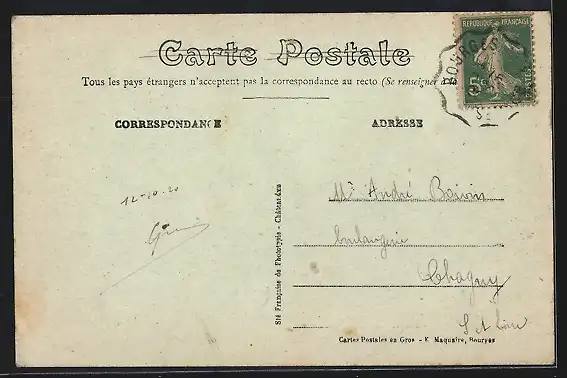 Carte Postale
Tous les pays étrangers n'acceptent pas la correspondance au recto (Se renseigner à
CORRESPONDANCE
ADRESSE
REPUBLIQUE FRANÇAISE
POSTES
5c
BOURGES
12-10-20
Mr André Boivin
boulangerie
Chagny
S et Loire
Sté Française de Phototypie - Châteaudun
Cartes Postales en Gros - E. Maquaire, Bourges